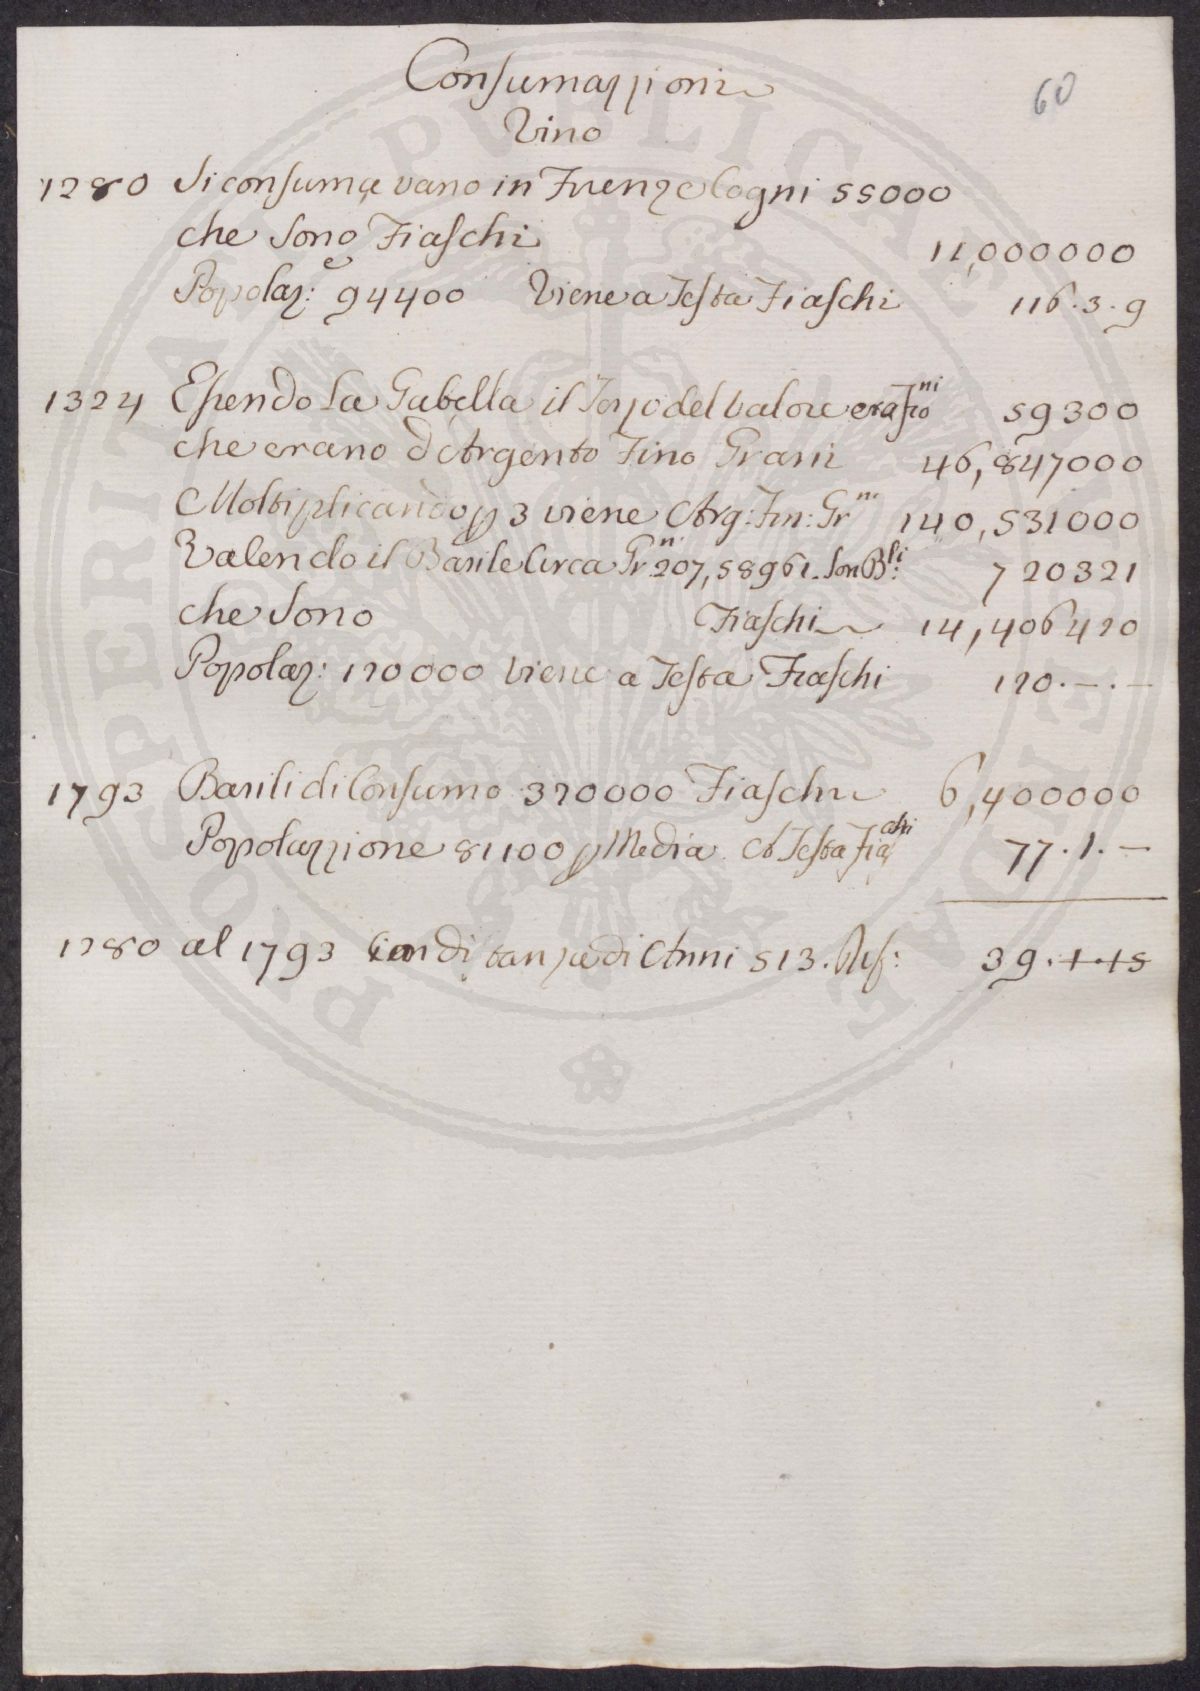 Consumazzioni
60
Vino
1280 Si consumavano in Firenze Cogni 55000
che sono Fiaschi 11,000000
Popolaz: e 94400 Viene a Testa Fiaschi 116.3.9
1324 Essendo la Gabella il Terzo del valore era f.ni 59300
che erano d'Argento Fino Grani 46,847000
Moltiplicando p 3 viene Arg: Fin: Gr.ni 140,531000
Valendo il Barile Circa Gr.n 207,58961. Son B.li 720321
che Sono Fiaschi 14,406420
Popolaz: 120000 Viene a Testa Fiaschi 120.—.—
1793 Barili di Consumo 320000 Fiaschi 6,400000
Popolazzione 81100 p Media A Testa Fiaschi 77.1.—
1280 al 1793 in distanza di Anni 513. 39.
PROSPERITATI PUBLICAE AUGENDAE